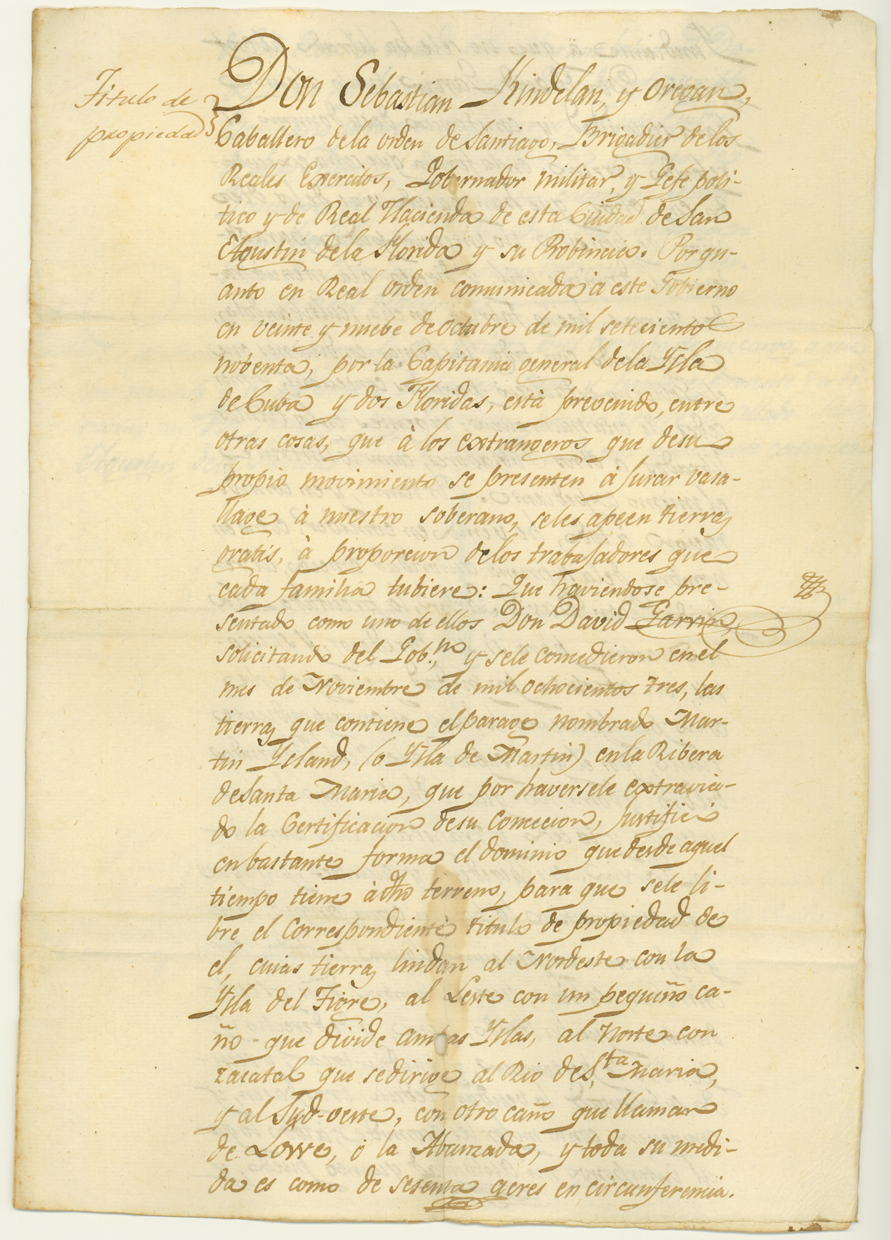 Titulo de
propiedad
Don Sebastian Kindelan, y Oregan,
Caballero de la orden de Santiago, Brigadier de los
Reales Exercitos, Gobernador militar, y Gefe poli-
tico y de Real Hacienda de esta Ciudad de San
Agustin de la Florida y su Probincia. Por qu-
anto en Real orden comunicada à este Gobierno
en veinte y nuebe de octubre de mil setecientos
nobenta, por la Capitania general de la Ysla
de Cuba y dos Floridas, està prevenido, entre
otras cosas, que à los extrangeros que de su
propio movimiento se presenten à jurar vasa-
llage à nuestro soberano, se les apeen tierras
gratis, à proporcion de los trabajadores que
cada familia tubiere: Que haviendose pre-
sentado como uno de ellos Don David Garvin
solicitando del Gob.no y se le concedieron en el
mes de Noviembre de mil ochocientos tres, las
tierras que contiene el parage nombrado Mar-
tin Ysland, (o Ysla de Martin) en la Ribera
de Santa Maria, que por haversele extravia-
do la Certificacion de su Concecion, justificò
en bastante forma el dominio que desde aquel
tiempo tiene à dho terreno, para que se le li-
bre el Correspondiente titulo de propiedad de
el, cuias tierras lindan al Nordeste con la
Ysla del Tigre, al Leste con un pequeño ca-
ño que divide ambas Yslas, al Norte con
zacatal que se dirige al Rio de S.ta Maria,
y al Sud-oeste, con otro caño que llaman
de Lowe, o la Abanzada, y toda su medi-
da es como de sesenta acres en circunferencia.